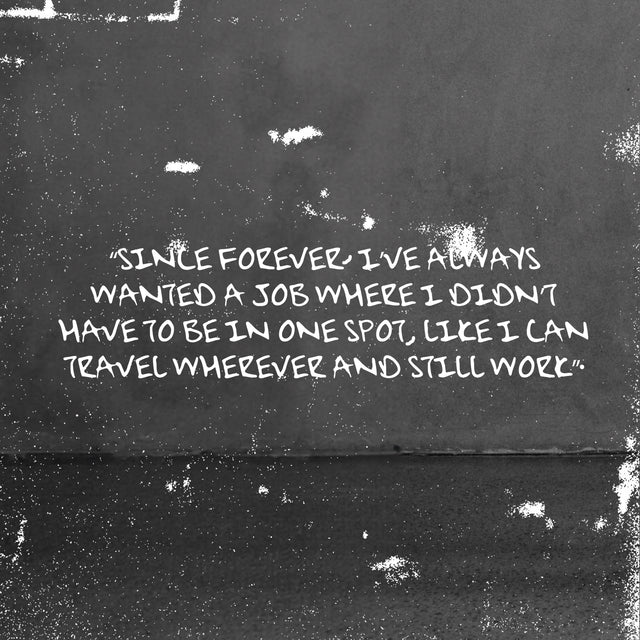 "SINCE FOREVER, I'VE ALWAYS
WANTED A JOB WHERE I DIDN'T
HAVE TO BE IN ONE SPOT, LIKE I CAN
TRAVEL WHEREVER AND STILL WORK".